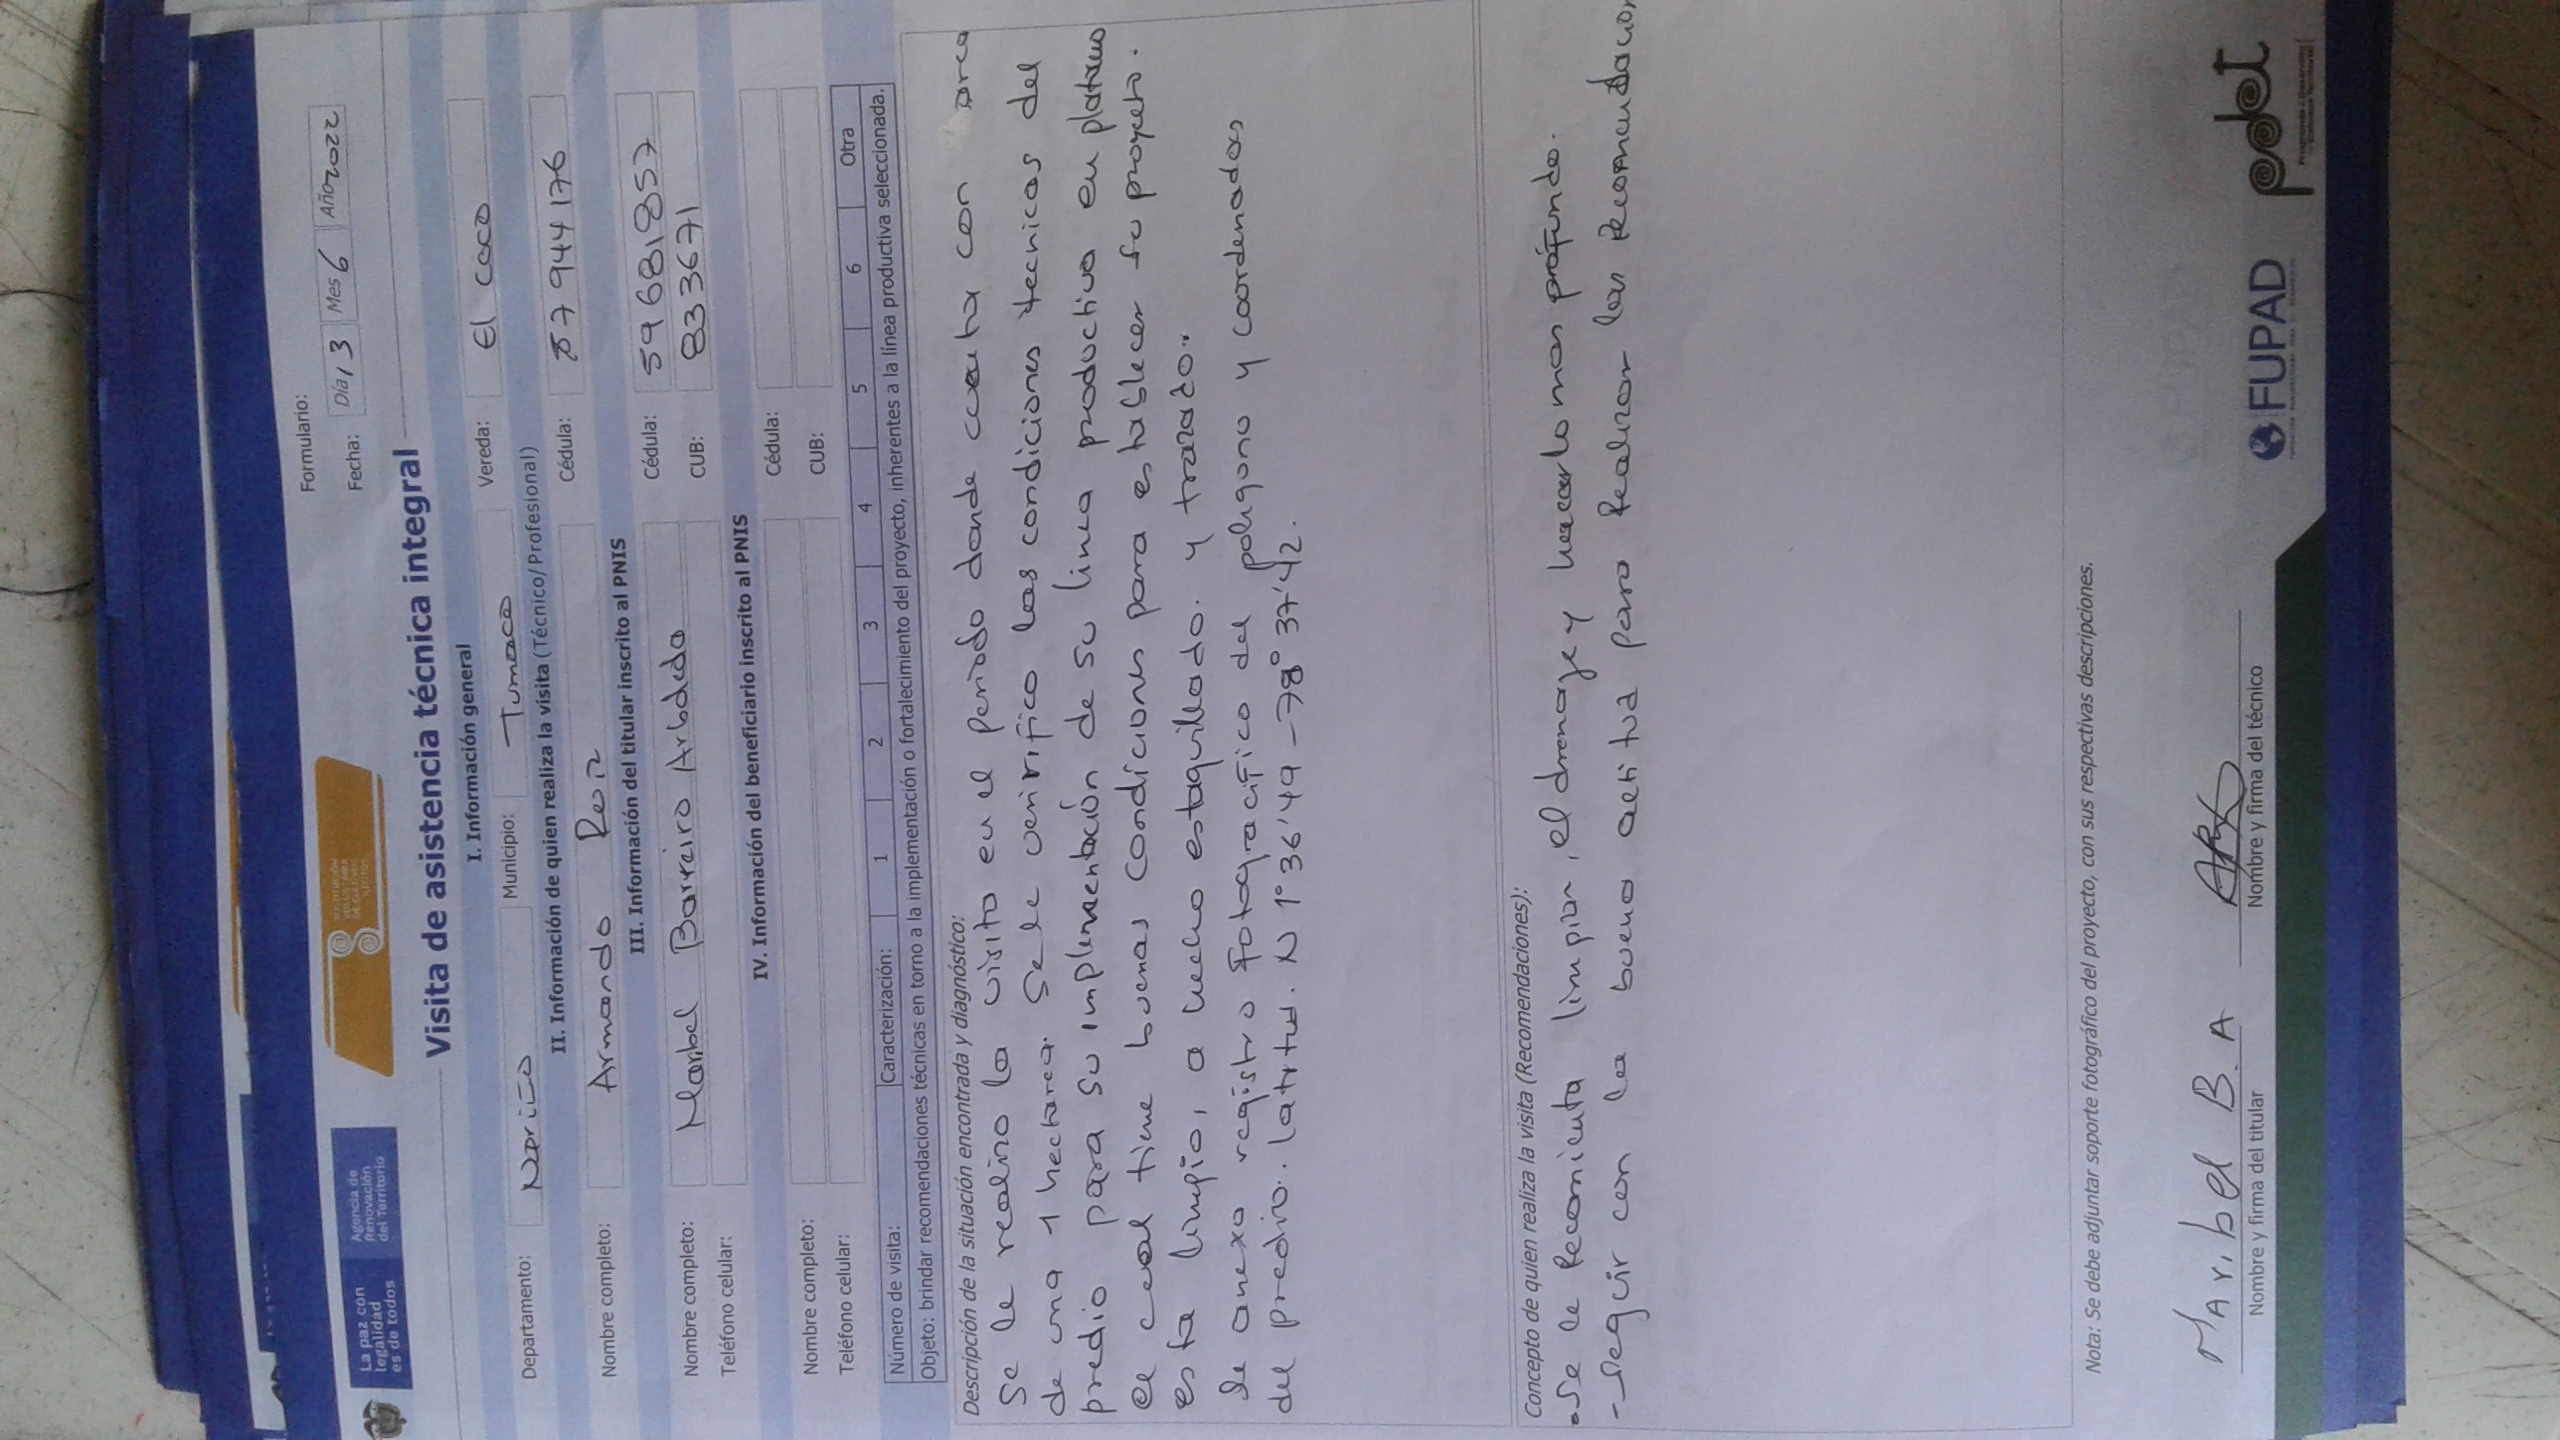 La paz con
legalidad
es de todos
Agencia de
Renovación
del Territorio
SUSTITUCIÓN
VOLUNTARIA
DE CULTIVOS
ILÍCITOS
Formulario:
Fecha: Día 13 Mes 6 Año 2022
Visita de asistencia técnica integral
I. Información general
Departamento: Nariño Municipio: Tumaco Vereda: El coco
II. Información de quien realiza la visita (Técnico/Profesional)
Nombre completo: Armando Cédula: 87944176
III. Información del titular inscrito al PNIS
Nombre completo: Maribel Barreiro Arboleda Cédula: 59681857
Teléfono celular: CUB: 833671
IV. Información del beneficiario inscrito al PNIS
Nombre completo: Cédula:
Teléfono celular: CUB:
Número de visita: Caracterización: 1 2 3 4 5 6 Otra
Objeto: brindar recomendaciones técnicas en torno a la implementación o fortalecimiento del proyecto, inherentes a la línea productiva seleccionada.
Descripción de la situación encontrada y diagnóstico:
Se le realizo la visita en el periodo donde cuenta con area
de una 1 hectarea. Se le verifico las condiciones tecnicas del
predio para su implementación de su linea productiva en platano
el cual tiene buenas condiciones para establecer su proyecto.
esta limpio, a hecho estaquillado. y trazado.
Se anexo registro Fotografico del poligono y coordenadas
del predio. latitud. N 1°36'49 -78°37'42.
Concepto de quien realiza la visita (Recomendaciones):
-Se le Recomienta limpiar, el drenaje y hacerlo mas profundo.
-Seguir con la buena actitud para Realizar las Recomendacion
Nota: Se debe adjuntar soporte fotográfico del proyecto, con sus respectivas descripciones.
Maribel B. A
Nombre y firma del titular
Nombre y firma del técnico
FUPAD
pdet